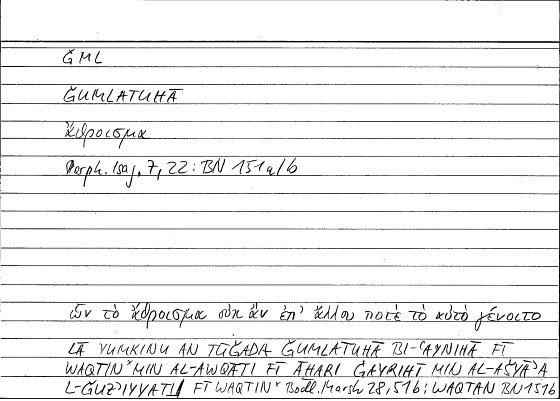 ǦML
ǦUMLATUHĀ
ἄθροισμα
Porph. Isag. 7, 22 : BN 151 a/b
ὧν τὸ ἄθροισμα οὐκ ἂν ἐπ' ἄλλου ποτὲ τὸ αὐτὸ γένοιτο
LĀ YUMKINU AN TŪǦADA ǦUMLATUHĀ BI-ʿAYNIHĀ FĪ
WAQTIN* MIN AL-AWQĀTI FĪ ĀḪARI ĠAYRIHĪ MIN AL-AŠYĀʾA
L-ǦUZʾIYYATI/ FĪ WAQTIN* Bodl. Marsh 28, 51b : WAQTAN BN 151b